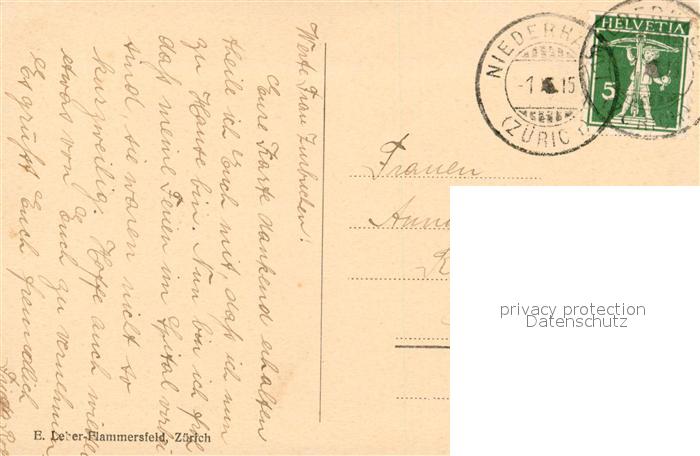 Werte Frau
Eure Karte dankend erhalten
theile ich Euch mit, daß ich nun
zu Hause bin. Nun bin ich froh
daß meine Ferien im Spital vorbei
sind sie waren nicht so
kurzweilig. Hoffe auch wieder
etwas von Euch zu vernehmen
Es grüßt Euch freundlich
E. Leber-Flammersfeld, Zürich
NIEDERHAS
-1. 15
(ZÜRIC
HELVETIA
5
Frauen
Anna
K
privacy protection
Datenschutz